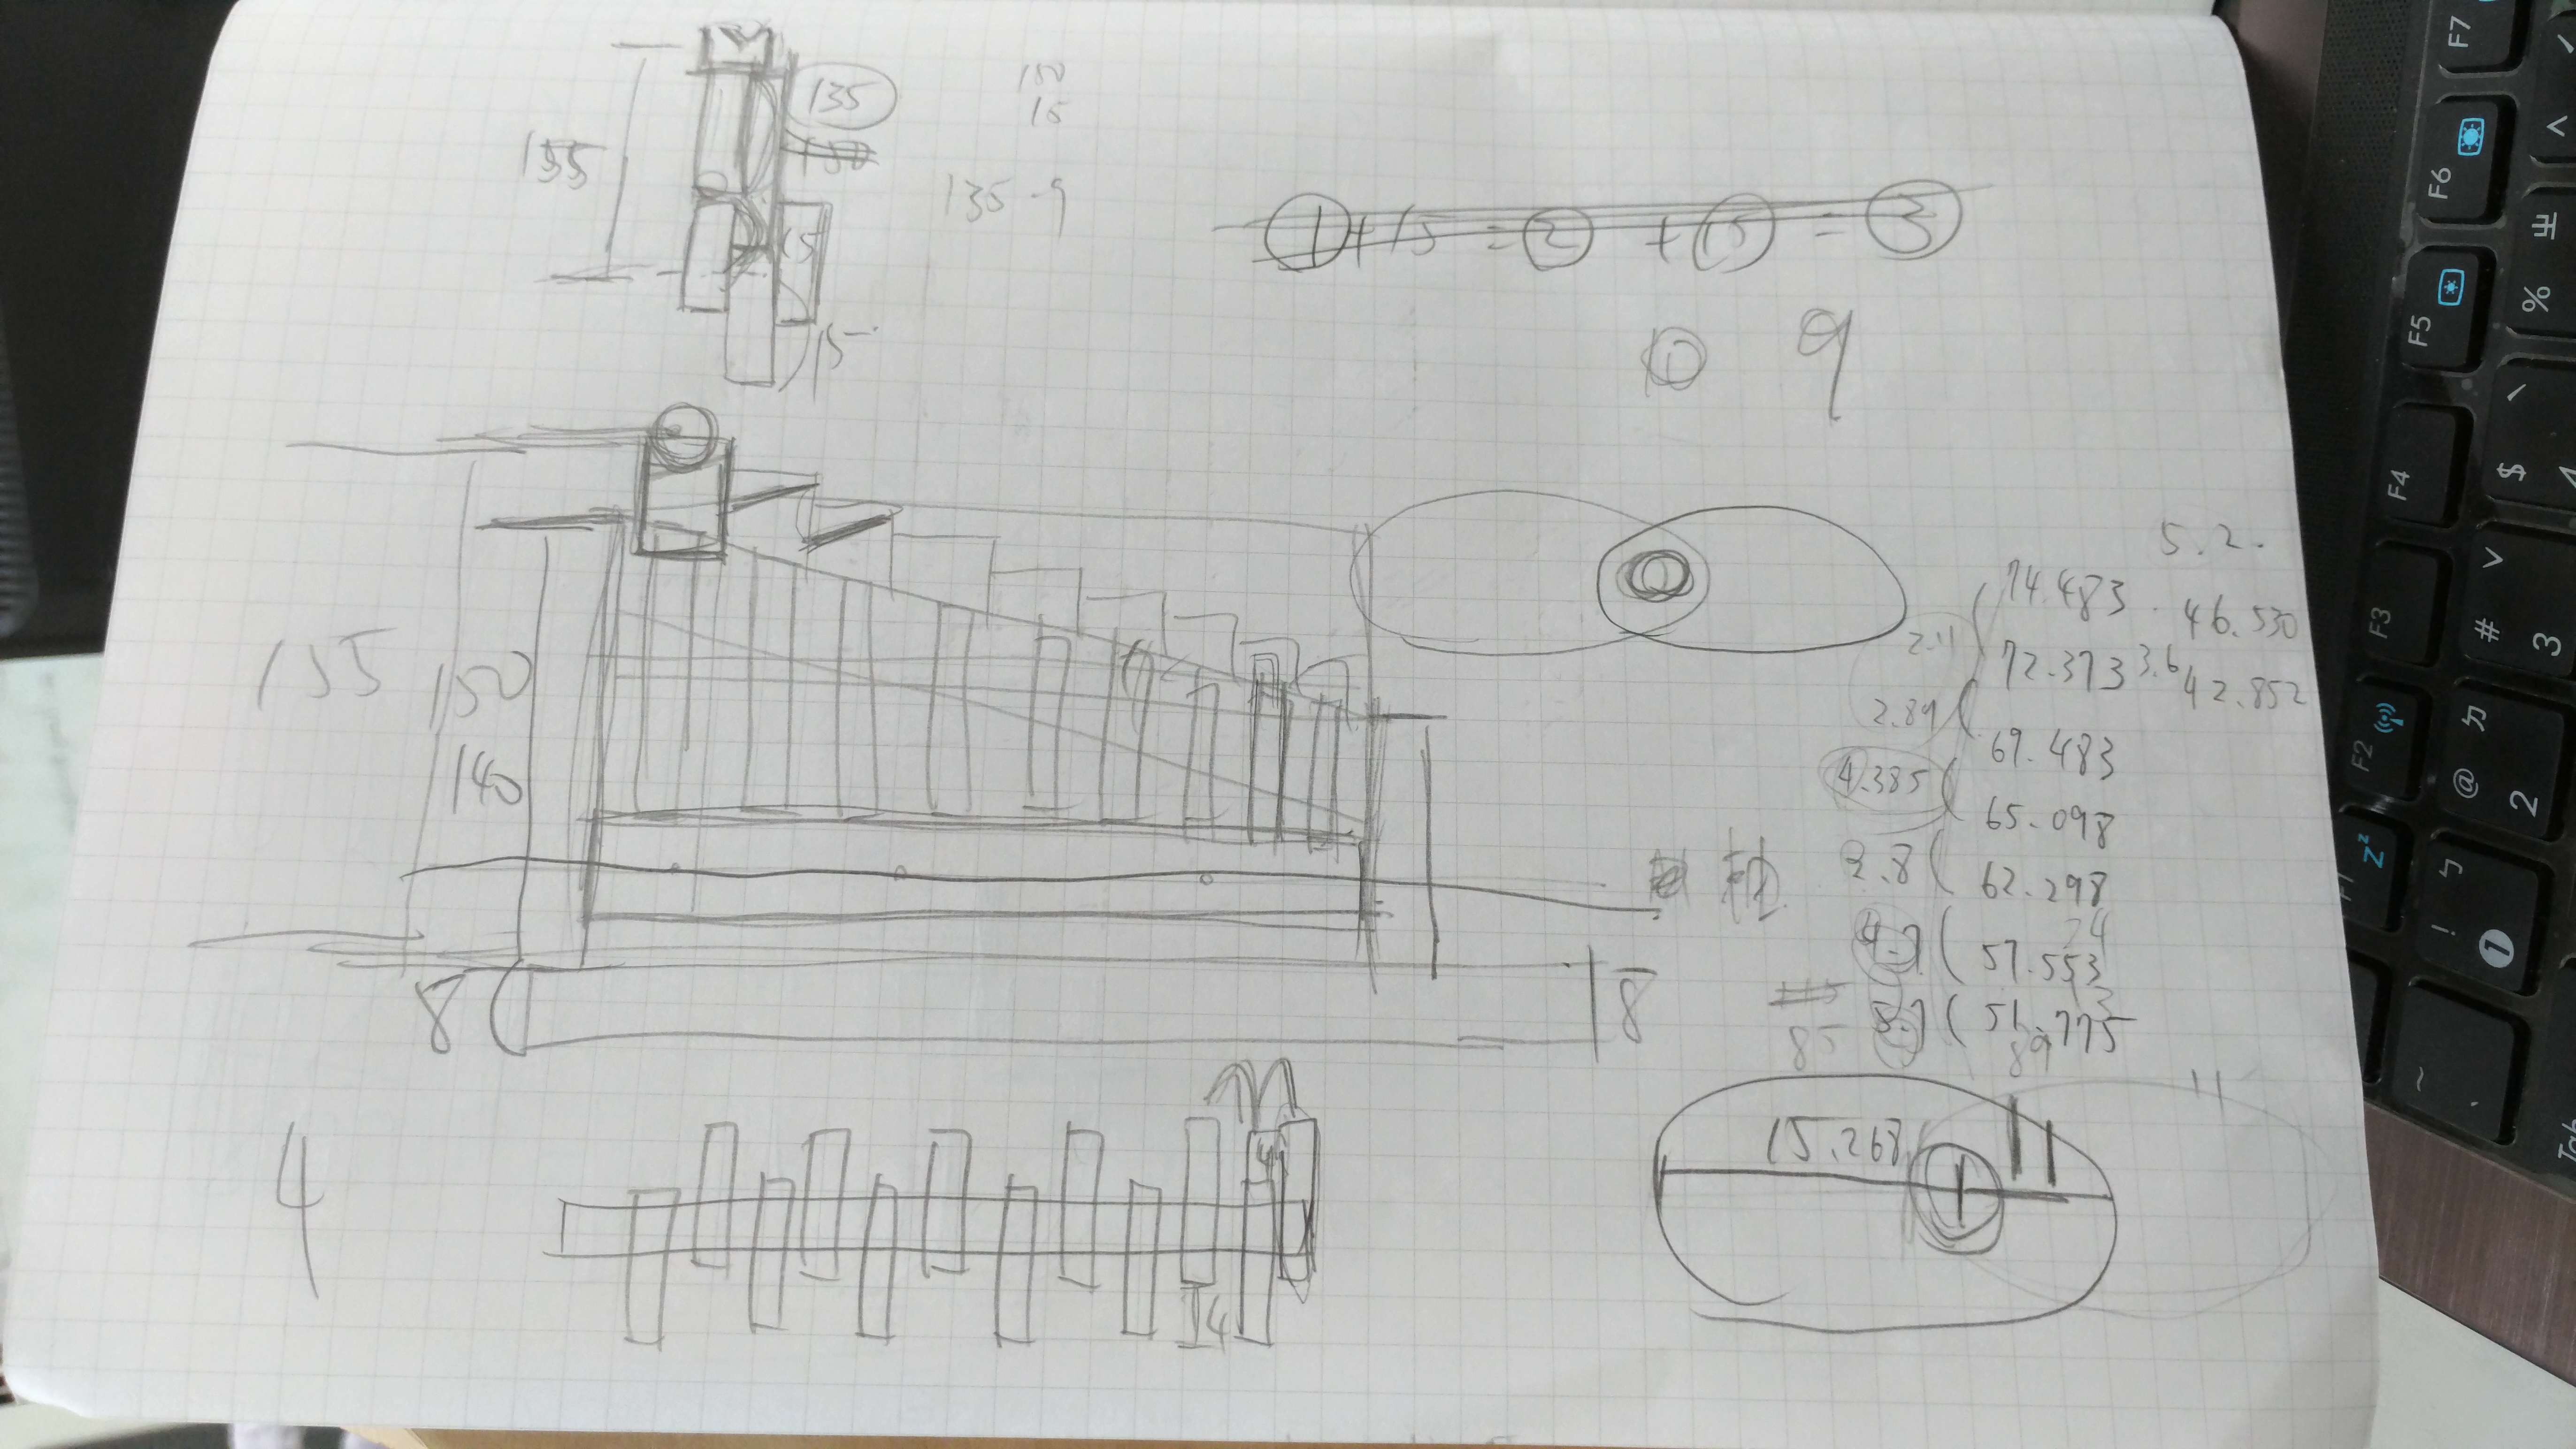 135
150
15
155
135-9
15
①+15=②+⑮=③
15
①
9
155
150
140
5.2.
74.483 46.530
2.11
72.373 3.6 42.852
2.89
69.483
4.385
65.098
2.8
62.298
57.553
85
8
8
4
15.268
11
4
4
F7
F6
F5
F4
F3
F2
F1
%
$
#
3
@
2
!
1
~
Tab